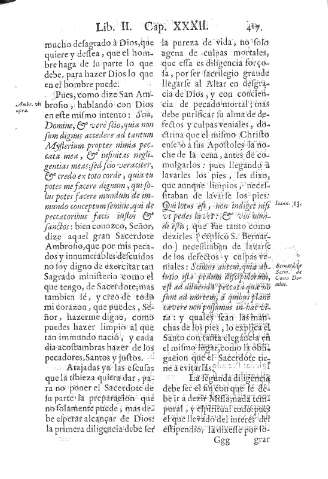 Lib. II. Cap. XXXII. 417.
mucho desagrado à Dios, que
quiere y dessea, que el hom-
bre haga de su parte lo que
debe, para hazer Dios lo que
en el hombre puede.
Pues, como dize San Am-
brosio, hablando con Dios
en este mismo intento: Scio,
Domine, & verè scio, quia non
sum dignus accedere ad tantum
Mysterium propter nimia pec-
cata mea, & infinitas negli-
gentias meas: sed scio veraciter,
& credo ex toto corde, quia tu
potes me facere dignum, qui so-
lus potes facere mundum de im-
mundo conceptum semine, qui de
peccatoribus facis iustos &
sanctos: bien conozco, Señor,
dize aquel gran Sacerdote
Ambrosio, que por mis peca-
dos y innumerables descuidos
no soy digno de exercitar tan
Sagrado ministerio como el
que tengo, de Sacerdote; mas
tambien sè, y creo de todo
mi corazon, que puedes, Se-
ñor, hazerme digno, como
puedes hazer limpio al que
tan immundo naciò, y cada
dia acostumbras hazer de los
pecadores, Santos y justos.
Atajadas ya las escusas
que la tibieza quiera dar, pa-
ra no poner el Sacerdote de
su parte la preparacion que
no solamente puede, mas de-
be esperar alcançar de Dios:
la primera diligencia debe ser
la pureza de vida, no solo
agena de culpas mortales,
que essa es diligencia forço-
sa, por ser sacrilegio grande
llegarse al Altar en desgra-
cia de Dios, y con concien-
cia de pecado mortal; mas
debe purificar su alma de de-
fectos y culpas veniales, do-
ctrina que el mismo Christo
enseñò à sus Apostoles la no-
che de la cena, antes de co-
mulgados: pues llegando à
lavarles los pies, les dixo,
que aunque limpios, necessi-
taban de lavarse los pies:
Qui lotus est, non indiget nisi
ut pedes lavet: & vos mun-
di estis; que fue tanto como
dezirles (explicò S. Bernar-
do) necessitaban de lavarse
de los defectos y culpas ve-
niales:
sunt ad mortem,
y quales sean las man-
chas de los pies, lo explica el
Santo con tanta elegancia en
el mismo lugar, como la obli-
gacion que el Sacerdote tie-
ne à evitarlas.
La segunda diligencia
debe ser el fin con que se de-
be ir à dezir Missa, nada tem-
poral, y espiritual todo: pues
el que llevado del interès del
estipendio, la dixesse por lo-
Ggg grar
Ambr. ubi
suprà.
Ioann. 13.
Bernard.
Serm. de
Cœna Do-
mini.